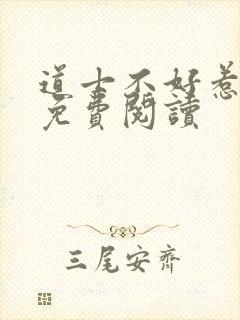 道士不好惹
免費閱讀
三尾安齊